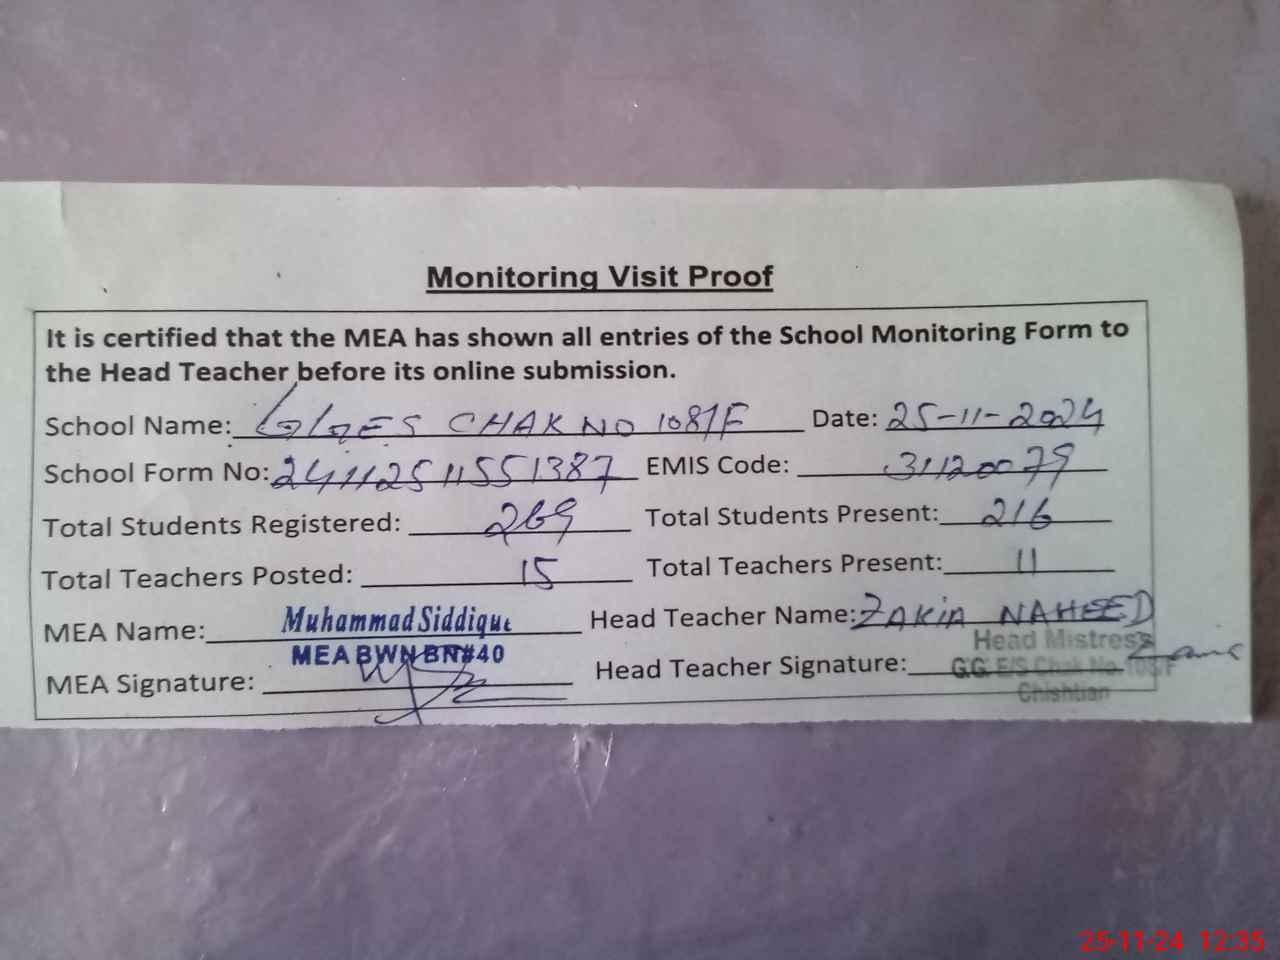 Monitoring Visit Proof
It is certified that the MEA has shown all entries of the School Monitoring Form to
the Head Teacher before its online submission.
School Name: GGES CHAK NO 108/F Date: 25-11-2024
School Form No: 24112511551387 EMIS Code: 31120079
Total Students Registered: 269 Total Students Present: 216
Total Teachers Posted: 15 Total Teachers Present: 11
MEA Name: Muhammad Siddique Head Teacher Name: ZAKIA NAHEED
MEA BWN BN#40 Head Mistress
MEA Signature: Head Teacher Signature: GG E/S Chak No. 108/F
Chishtian
25-11-24 12:35